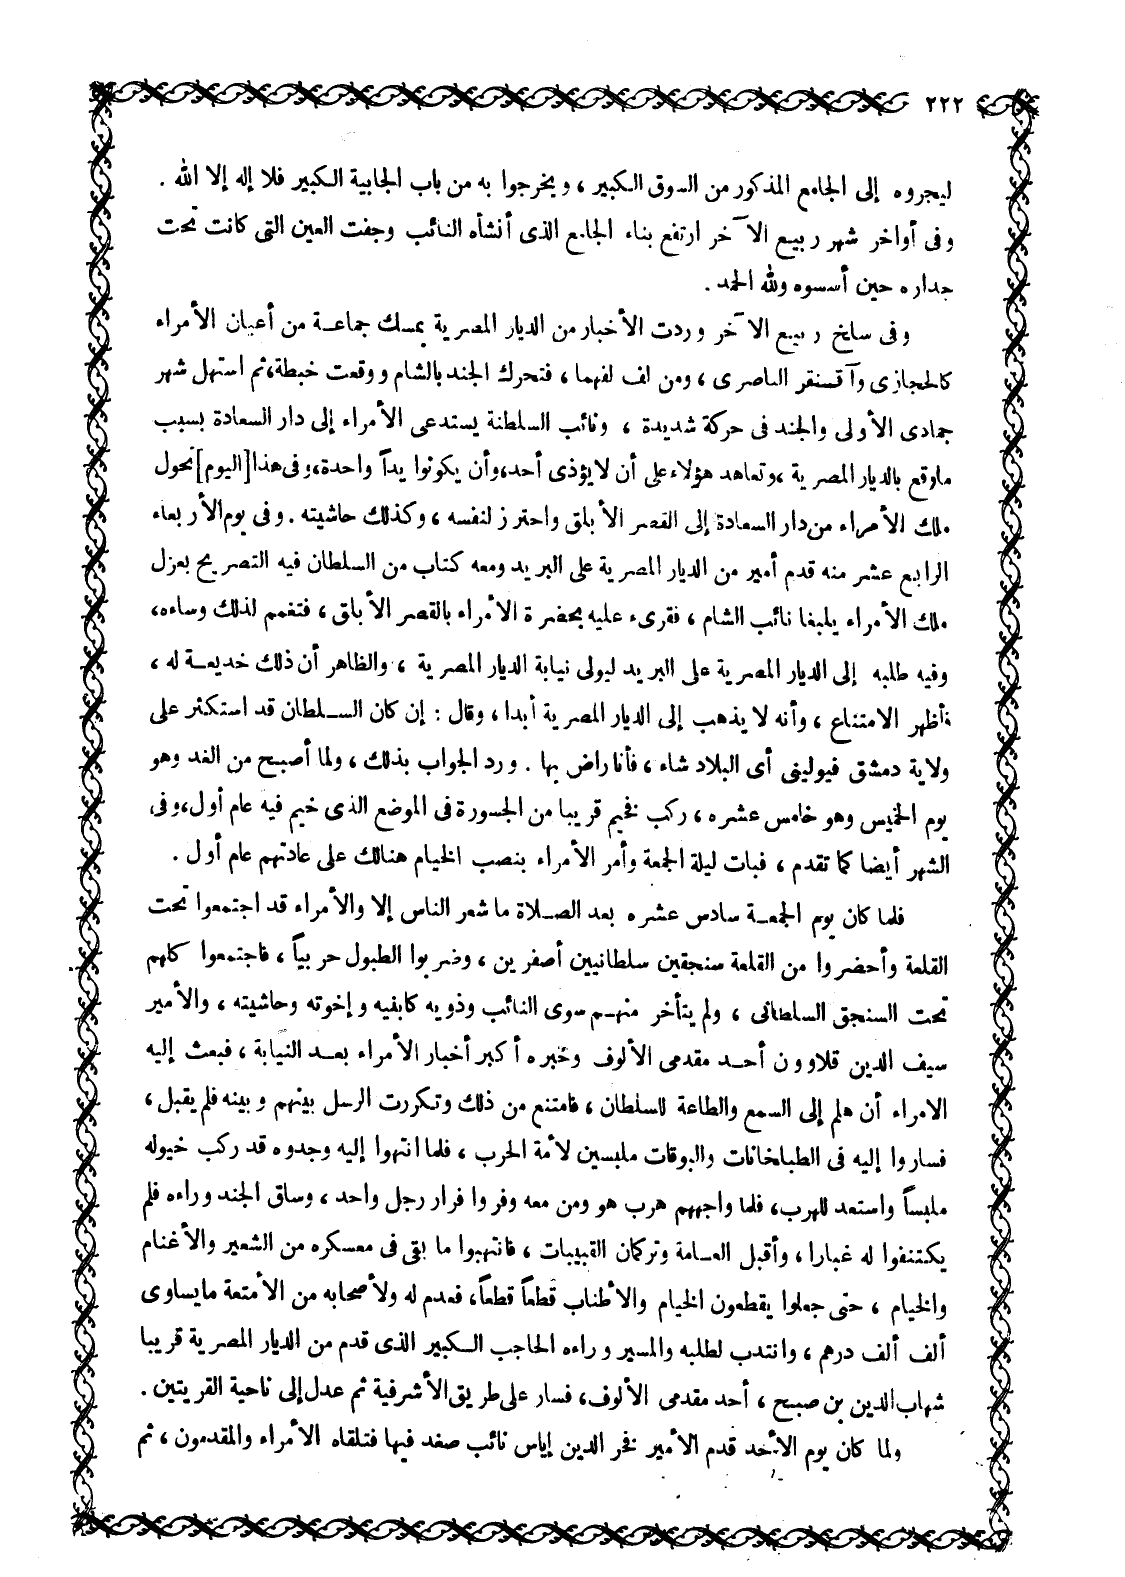 ٢٢٢
ليجروه إلى الجامع المذكور من السوق الكبير ، ويخرجوا به من باب الجابية الكبير فلا إله إلا الله .
وفى أواخر شهر ربيع الآخر ارتفع بناء الجامع الذى أنشأه النائب وجفت العين التى كانت تحت
جداره حين أسسوه ولله الحمد .
وفى سلخ ربيع الآخر وردت الأخبار من الديار المصرية بمسك جماعة من أعيان الأمراء
كالحجازى وآقسنقر الناصرى ، ومن لف لفهما ، فتحرك الجند بالشام ووقعت خبطة، ثم استهل شهر
جمادى الأولى والجند فى حركة شديدة ، ونائب السلطنة يستدعى الأمراء إلى دار السعادة بسبب
ماوقع بالديار المصرية ، وتعاهد هؤلاء على أن لا يؤذى أحد، وأن يكونوا يداً واحدة، وفى هذا [اليوم] تحول
ملك الأمراء من دار السعادة إلى القصر الأبلق واحترز لنفسه ، وكذلك حاشيته . وفى يوم الأربعاء
الرابع عشر منه قدم أمير من الديار المصرية على البريد ومعه كتاب من السلطان فيه التصريح بعزل
ملك الأمراء يلبغا نائب الشام ، فقرىء عليه بحضرة الأمراء بالقصر الأبلق ، فتغمم لذلك وساءه،
وفيه طلبه إلى الديار المصرية على البريد ليولى نيابة الديار المصرية ، والظاهر أن ذلك خديعة له ،
فأظهر الامتناع ، وأنه لا يذهب إلى الديار المصرية أبدا ، وقال : إن كان السلطان قد استكثر على
ولاية دمشق فيولينى أى البلاد شاء ، فأنا راض بها . ورد الجواب بذلك ، ولما أصبح من الغد وهو
يوم الخميس وهو خامس عشره ، ركب فخيم قريبا من الجسورة فى الموضع الذى خيم فيه عام أول، وفى
الشهر أيضا كما تقدم ، فبات ليلة الجمعة وأمر الأمراء بنصب الخيام هنالك على عادتهم عام أول .
فلما كان يوم الجمعة سادس عشره بعد الصلاة ما شعر الناس إلا والأمراء قد اجتمعوا تحت
القلعة وأحضروا من القلعة سنجقين سلطانيين أصفرين ، وضربوا الطبول حربياً ، فاجتمعوا كلهم
تحت السنجق السلطانى ، ولم يتأخر منهم سوى النائب وذويه كابنيه وإخوته وحاشيته ، والأمير
سيف الدين قلاوون أحد مقدمى الألوف وخبره أكبر أخبار الأمراء بعد النيابة ، فبعث إليه
الامراء أن هلم إلى السمع والطاعة للسلطان ، فامتنع من ذلك وتكررت الرسل بينهم وبينه فلم يقبل ،
فساروا إليه فى الطبلخانات والبوقات ملبسين لأمة الحرب ، فلما انتهوا إليه وجدوه قد ركب خيوله
ملبساً واستعد للهرب، فلما واجههم هرب هو ومن معه وفروا فرار رجل واحد ، وساق الجند وراءه فلم
يكتنفوا له غبارا ، وأقبل العامة وتركمان القبيبات ، فانتهبوا ما بقى فى معسكره من الشعير والأغنام
والخيام ، حتى جعلوا يقطعون الخيام والأطناب قطعاً قطعاً، فعدم له ولأصحابه من الأمتعة مايساوى
ألف ألف درهم ، وانتدب لطلبه والمسير وراءه الحاجب الكبير الذى قدم من الديار المصرية قريبا
شهاب الدين بن صبح ، أحد مقدمى الألوف، فسار على طريق الأشرفية ثم عدل إلى ناحية القريتين .
ولما كان يوم الأحد قدم الأمير فخر الدين إياس نائب صفد فيها فتلقاه الأمراء والمقدمون ، ثم